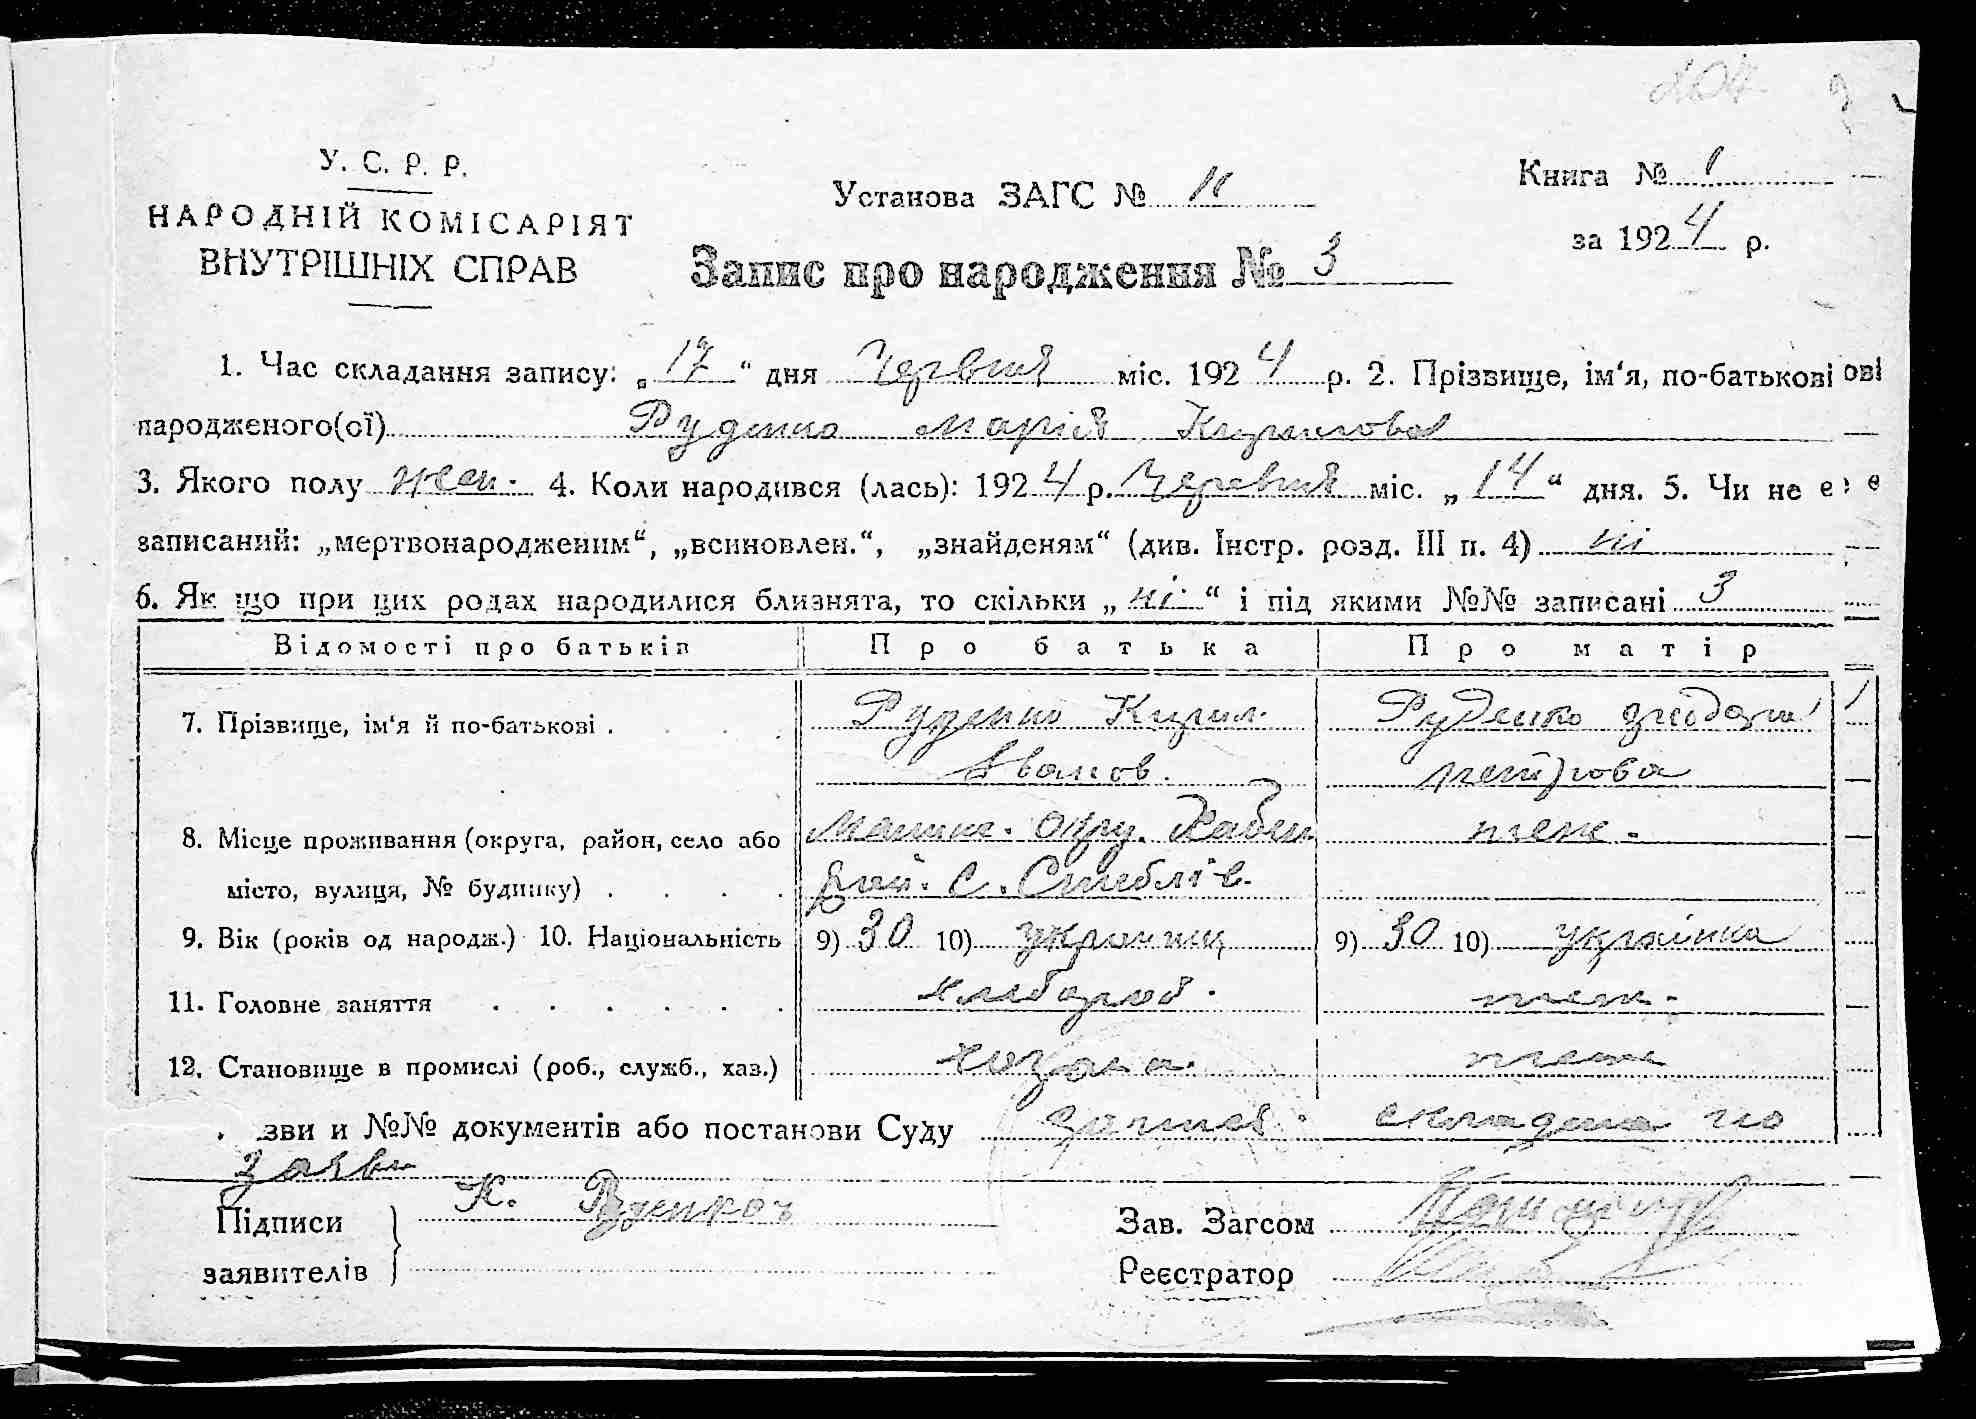 104
У. С. Р. Р.
НАРОДНІЙ КОМІСАРІЯТ
ВНУТРІШНІХ СПРАВ
Установа ЗАГС №
Книга № 1
за 1924 р.
Запис про народження № 3
1. Час складання запису: „17“ дня Червня міс. 1924 р. 2. Прізвище, ім‘я, по-батькові ові
народженого(ої) Руденко Марія Кирилова
3. Якого полу жен. 4. Коли народився (лась): 1924 р. Червня міс. „14“ дня. 5. Чи не е е
записаний: „мертвонародженим“, „всиновлен.“, „знайденям“ (див. Інстр. розд. III п. 4) ні
6. Як що при цих родах народилися близнята, то скільки „ні“ і під якими №№ записані 3
Відомості про батьків Про батька Про матір
7. Прізвище, ім‘я й по-батькові . Руденко Кирил Руденко
Іванов. Петрова
8. Місце проживання (округа, район, село або Окру. теж.
місто, вулиця, № будинку) рай. с. Стеблів.
9. Вік (років од народж.) 10. Національність 9) 30 10) українец 9) 30 10) українка
11. Головне заняття хлібороб. теж.
12. Становище в промислі (роб., служб., хаз.) теж
зви и №№ документів або постанови Суду запись складена по
заяви
Підписи К. Руденко
заявителів
Зав. Загсом
Реєстратор